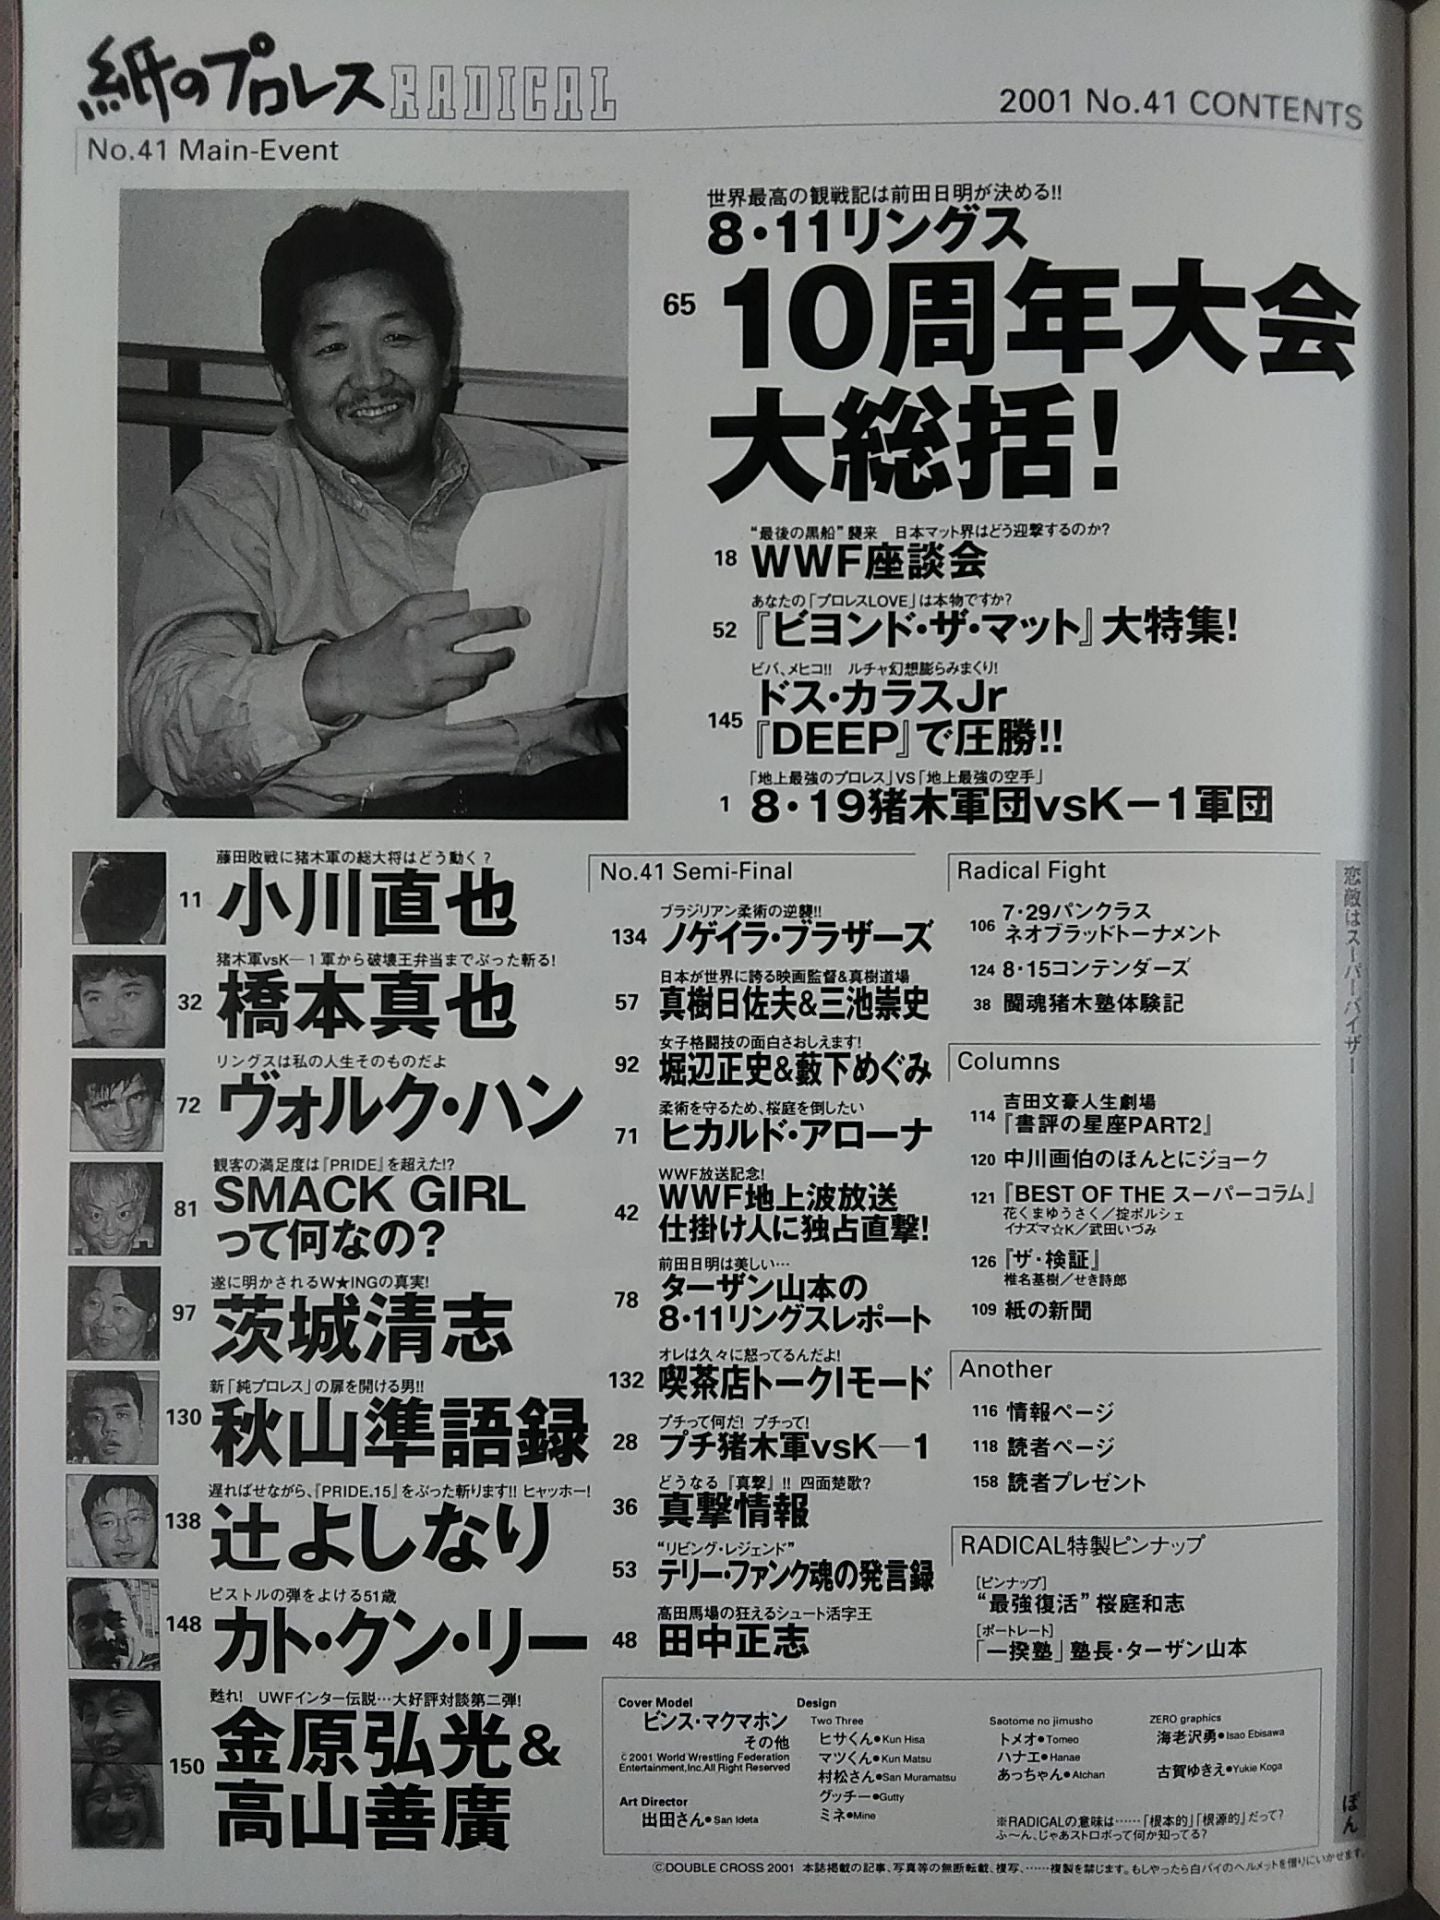 紙のプロレス RADICAL
2001 No.41 CONTENTS
No.41 Main-Event
世界最高の観戦記は前田日明が決める!!
8・11リングス
65
10周年大会
大総括!
“最後の黒船”襲来 日本マット界はどう迎撃するのか?
18 WWF座談会
あなたの「プロレスLOVE」は本物ですか?
52 『ビヨンド・ザ・マット』大特集!
ビバ、メヒコ!! ルチャ幻想膨らみまくり!
145
ドス・カラスJr
『DEEP』で圧勝!!
「地上最強のプロレス」VS「地上最強の空手」
1 8・19猪木軍団vsK－1軍団
藤田敗戦に猪木軍の総大将はどう動く?
11 小川直也
猪木軍vsK―1軍から破壊王弁当までぶった斬る!
32 橋本真也
リングスは私の人生そのものだよ
72 ヴォルク・ハン
観客の満足度は『PRIDE』を超えた!?
81
SMACK GIRL
って何なの?
遂に明かされるW★INGの真実!
97 茨城清志
新「純プロレス」の扉を開ける男!!
130 秋山準語録
遅ればせながら、『PRIDE.15』をぶった斬ります!! ヒャッホー!
138 辻よしなり
ピストルの弾をよける51歳
148 カト・クン・リー
甦れ! UWFインター伝説…大好評対談第二弾!
150
金原弘光&
高山善廣
No.41 Semi-Final
ブラジリアン柔術の逆襲!!
134 ノゲイラ・ブラザーズ
日本が世界に誇る映画監督&真樹道場
57 真樹日佐夫&三池崇史
女子格闘技の面白さおしえます!
92 堀辺正史&藪下めぐみ
柔術を守るため、桜庭を倒したい
71 ヒカルド・アローナ
WWF放送記念!
42
WWF地上波放送
仕掛け人に独占直撃!
前田日明は美しい…
78
ターザン山本の
8・11リングスレポート
オレは久々に怒ってるんだよ!
132 喫茶店トークIモード
プチって何だ! プチって!
28 プチ猪木軍vsK―1
どうなる『真撃』!! 四面楚歌?
36 真撃情報
“リビング・レジェンド”
53 テリー・ファンク魂の発言録
高田馬場の狂えるシュート活字王
48 田中正志
Radical Fight
106
7・29パンクラス
ネオブラッドトーナメント
124 8・15コンテンダーズ
38 闘魂猪木塾体験記
Columns
114
吉田文豪人生劇場
『書評の星座PART2』
120 中川画伯のほんとにジョーク
121 『BEST OF THE スーパーコラム』
花くまゆうさく／掟ポルシェ
イナズマ☆K／武田いづみ
126 『ザ・検証』
椎名基樹／せき詩郎
109 紙の新聞
Another
116 情報ページ
118 読者ページ
158 読者プレゼント
RADICAL特製ピンナップ
[ピンナップ]
“最強復活”桜庭和志
[ポートレート]
「一揆塾」塾長・ターザン山本
恋敵はスーパーバイザー
ぽん
Cover Model
ビンス・マクマホン
その他
©2001 World Wrestling Federation
Entertainment,Inc.All Right Reserved
Art Director
出田さん●San Ideta
Design
Two Three
ヒサくん●Kun Hisa
マツくん●Kun Matsu
村松さん●San Muramatsu
グッチー●Gutty
ミネ●Mine
Saotome no jimusho
トメオ●Tomeo
ハナエ●Hanae
あっちゃん●Atchan
ZERO graphics
海老沢勇●Isao Ebisawa
古賀ゆきえ●Yukie Koga
※RADICALの意味は……「根本的」「根源的」だって?
ふ〜ん、じゃあストロボって何か知ってる?
©DOUBLE CROSS 2001 本誌掲載の記事、写真等の無断転載、複写、……複製を禁じます。もしやったら白バイのヘルメットを借りにいかせます。